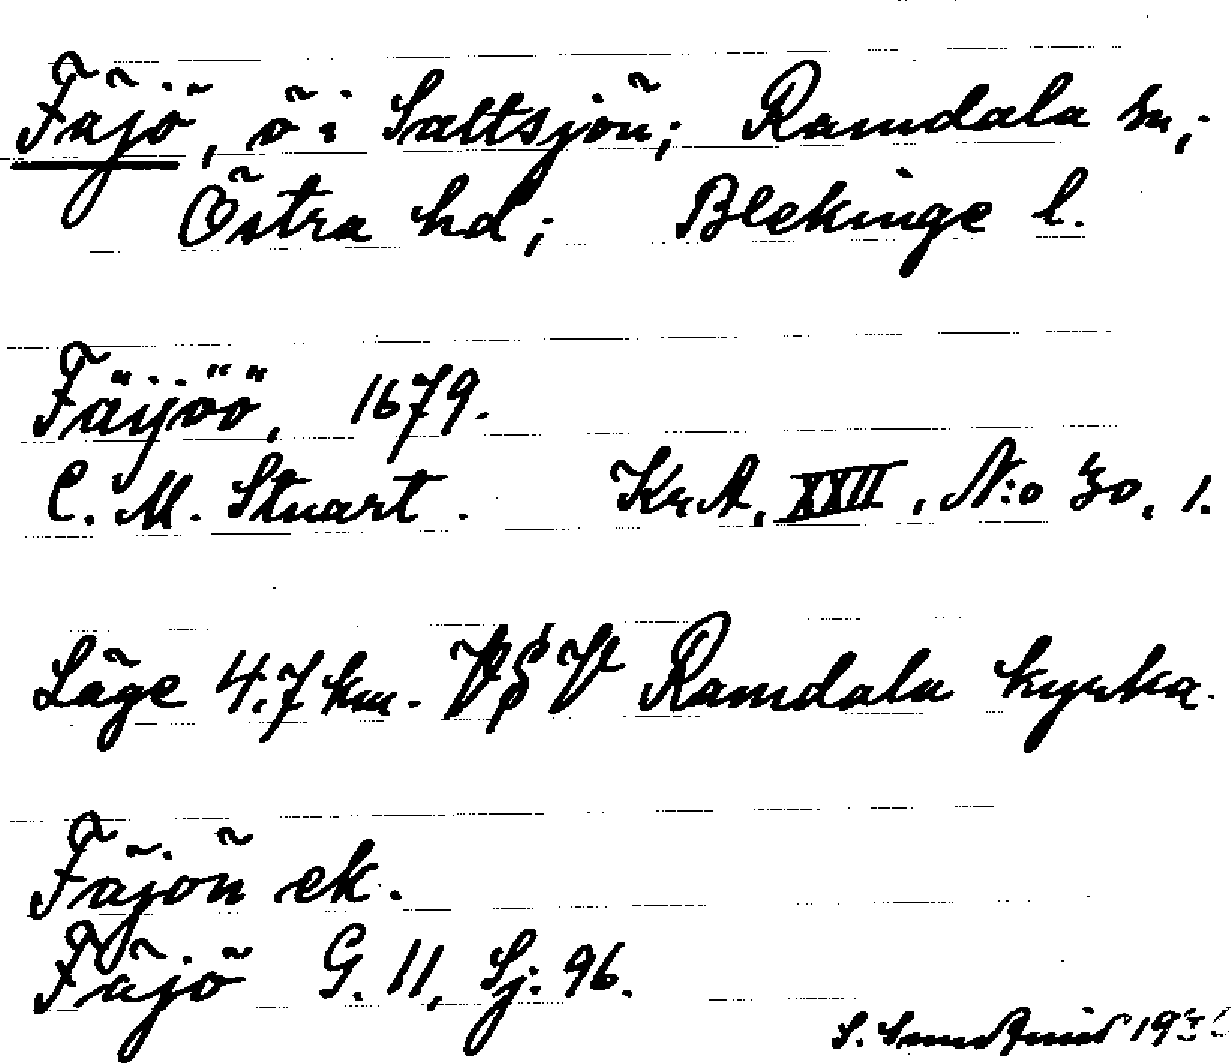 Fäjö, ö i Saltsjön; Ramdala sn,;
Östra hd; Blekinge l.
Fäijöö, 1679.
C. M. Stuart. KrA, XXII, N:o 30, 1.
Läge 4.7 km. VSV Ramdala kyrka.
Fäjön ek.
Fäjö G. 11, Sj. 96.
S.